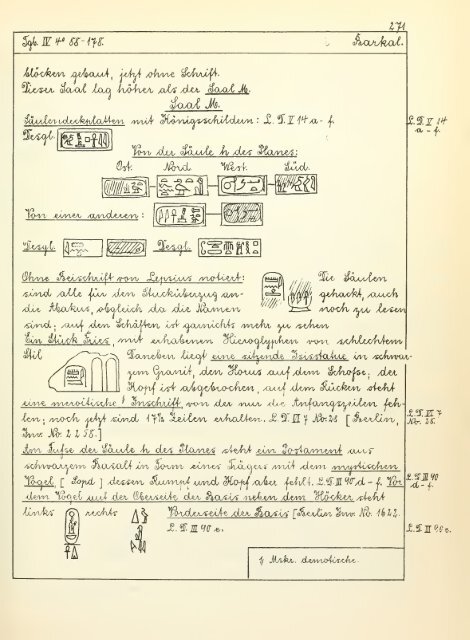 271
Tgb. IV 4° 88-178. Barkal.
blöcken gebaut, jetzt ohne Schrift.
Dieser Saal lag höher als der Saal M.
Saal M.
Säulendeckplatten mit Königsschildern: L. D. V 14 a-f.
L. D. V 14 a-f.
Desgl.
Von der Säule h des Planes:
Ost. Nord. West. Süd.
Von einer anderen:
Desgl. Desgl.
Ohne Beischrift von Lepsius notiert: Die Säulen
sind alle für den Stucküberzug an- gehackt, auch
die Abakus, obgleich da die Namen noch zu lesen
sind; auf den Schäften ist garnichts mehr zu sehen
Ein Stück Fries, mit erhabenen Hieroglyphen von schlechtem
Stil Daneben liegt eine sitzende Isisstatue in schwar-
zem Granit, den Horus auf dem Schofse; der
Kopf ist abgebrochen, auf dem Rücken steht
eine meroitische¹ Inschrift, von der nur die Anfangszeilen feh-
len; noch jetzt sind 17½ Zeilen erhalten. L. D. VI 7 No. 28 [Berlin,
L. D. VI 7 No. 28.
Inv. No. 2258.]
Am Fufse der Säule h des Planes steht ein Postament aus
schwarzem Basalt in Form eines Trägers mit dem mystischen
Vogel [Sopd] dessen Rumpf und Kopf aber fehlt. L. D. III 90 d-f. Vor
L. D. III 90 d-f.
dem Vogel auf der Oberseite der Basis neben dem Höcker steht
links rechts Vorderseite der Basis [Berlin Inv. No. 1622.
L. D. III 90 e.
L. D. III 90 e.
1) Mskr. demotische.